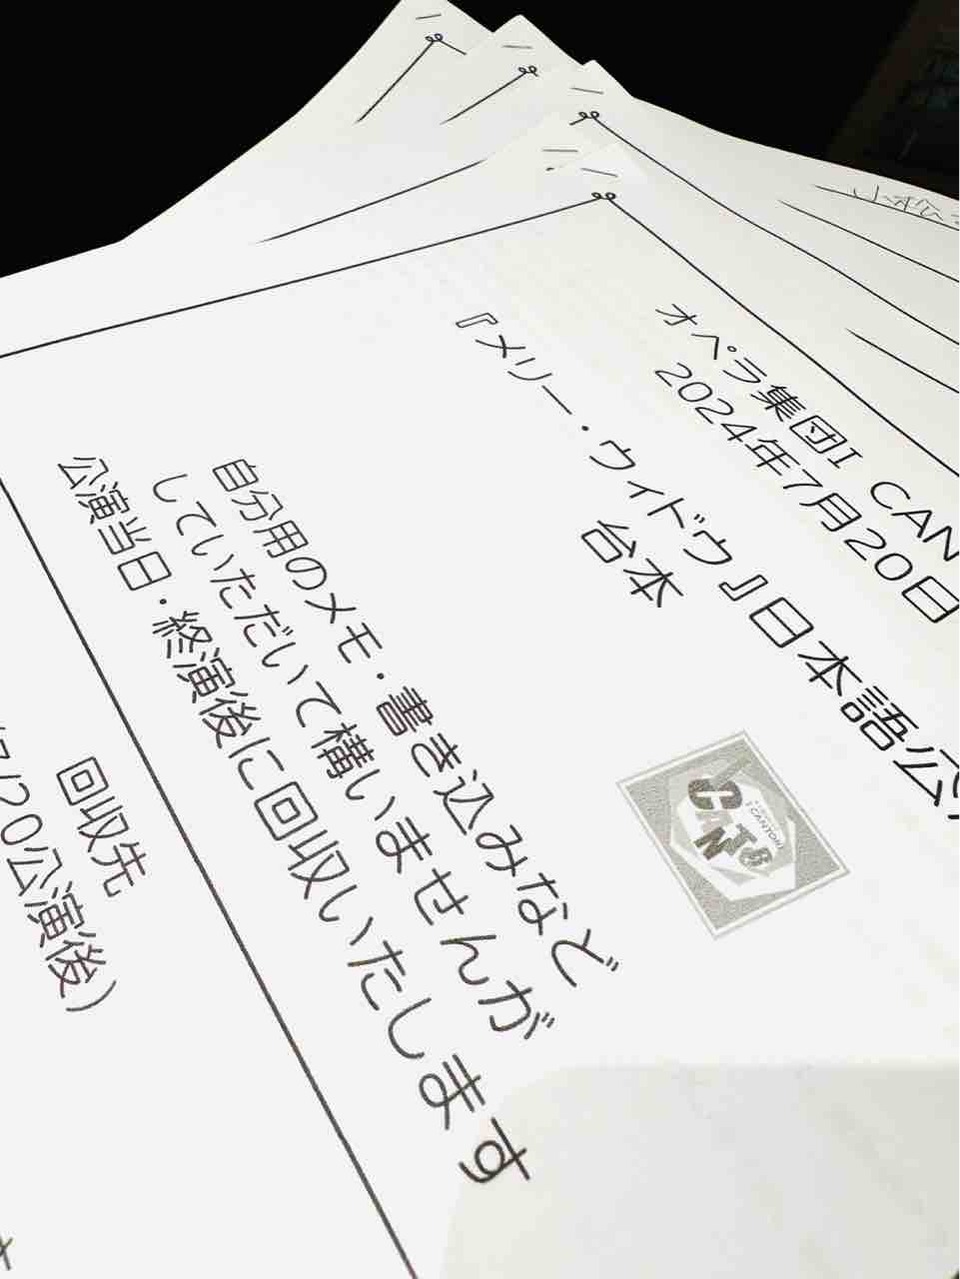 オペラ集団I CAN
2024年7月20日
『メリー・ウィドウ』日本語公
台本
CANTO
I CANTORI
自分用のメモ・書き込みなど
していただいて構いませんが
公演当日・終演後に回収いたします
回収先
/20公演後)
小松